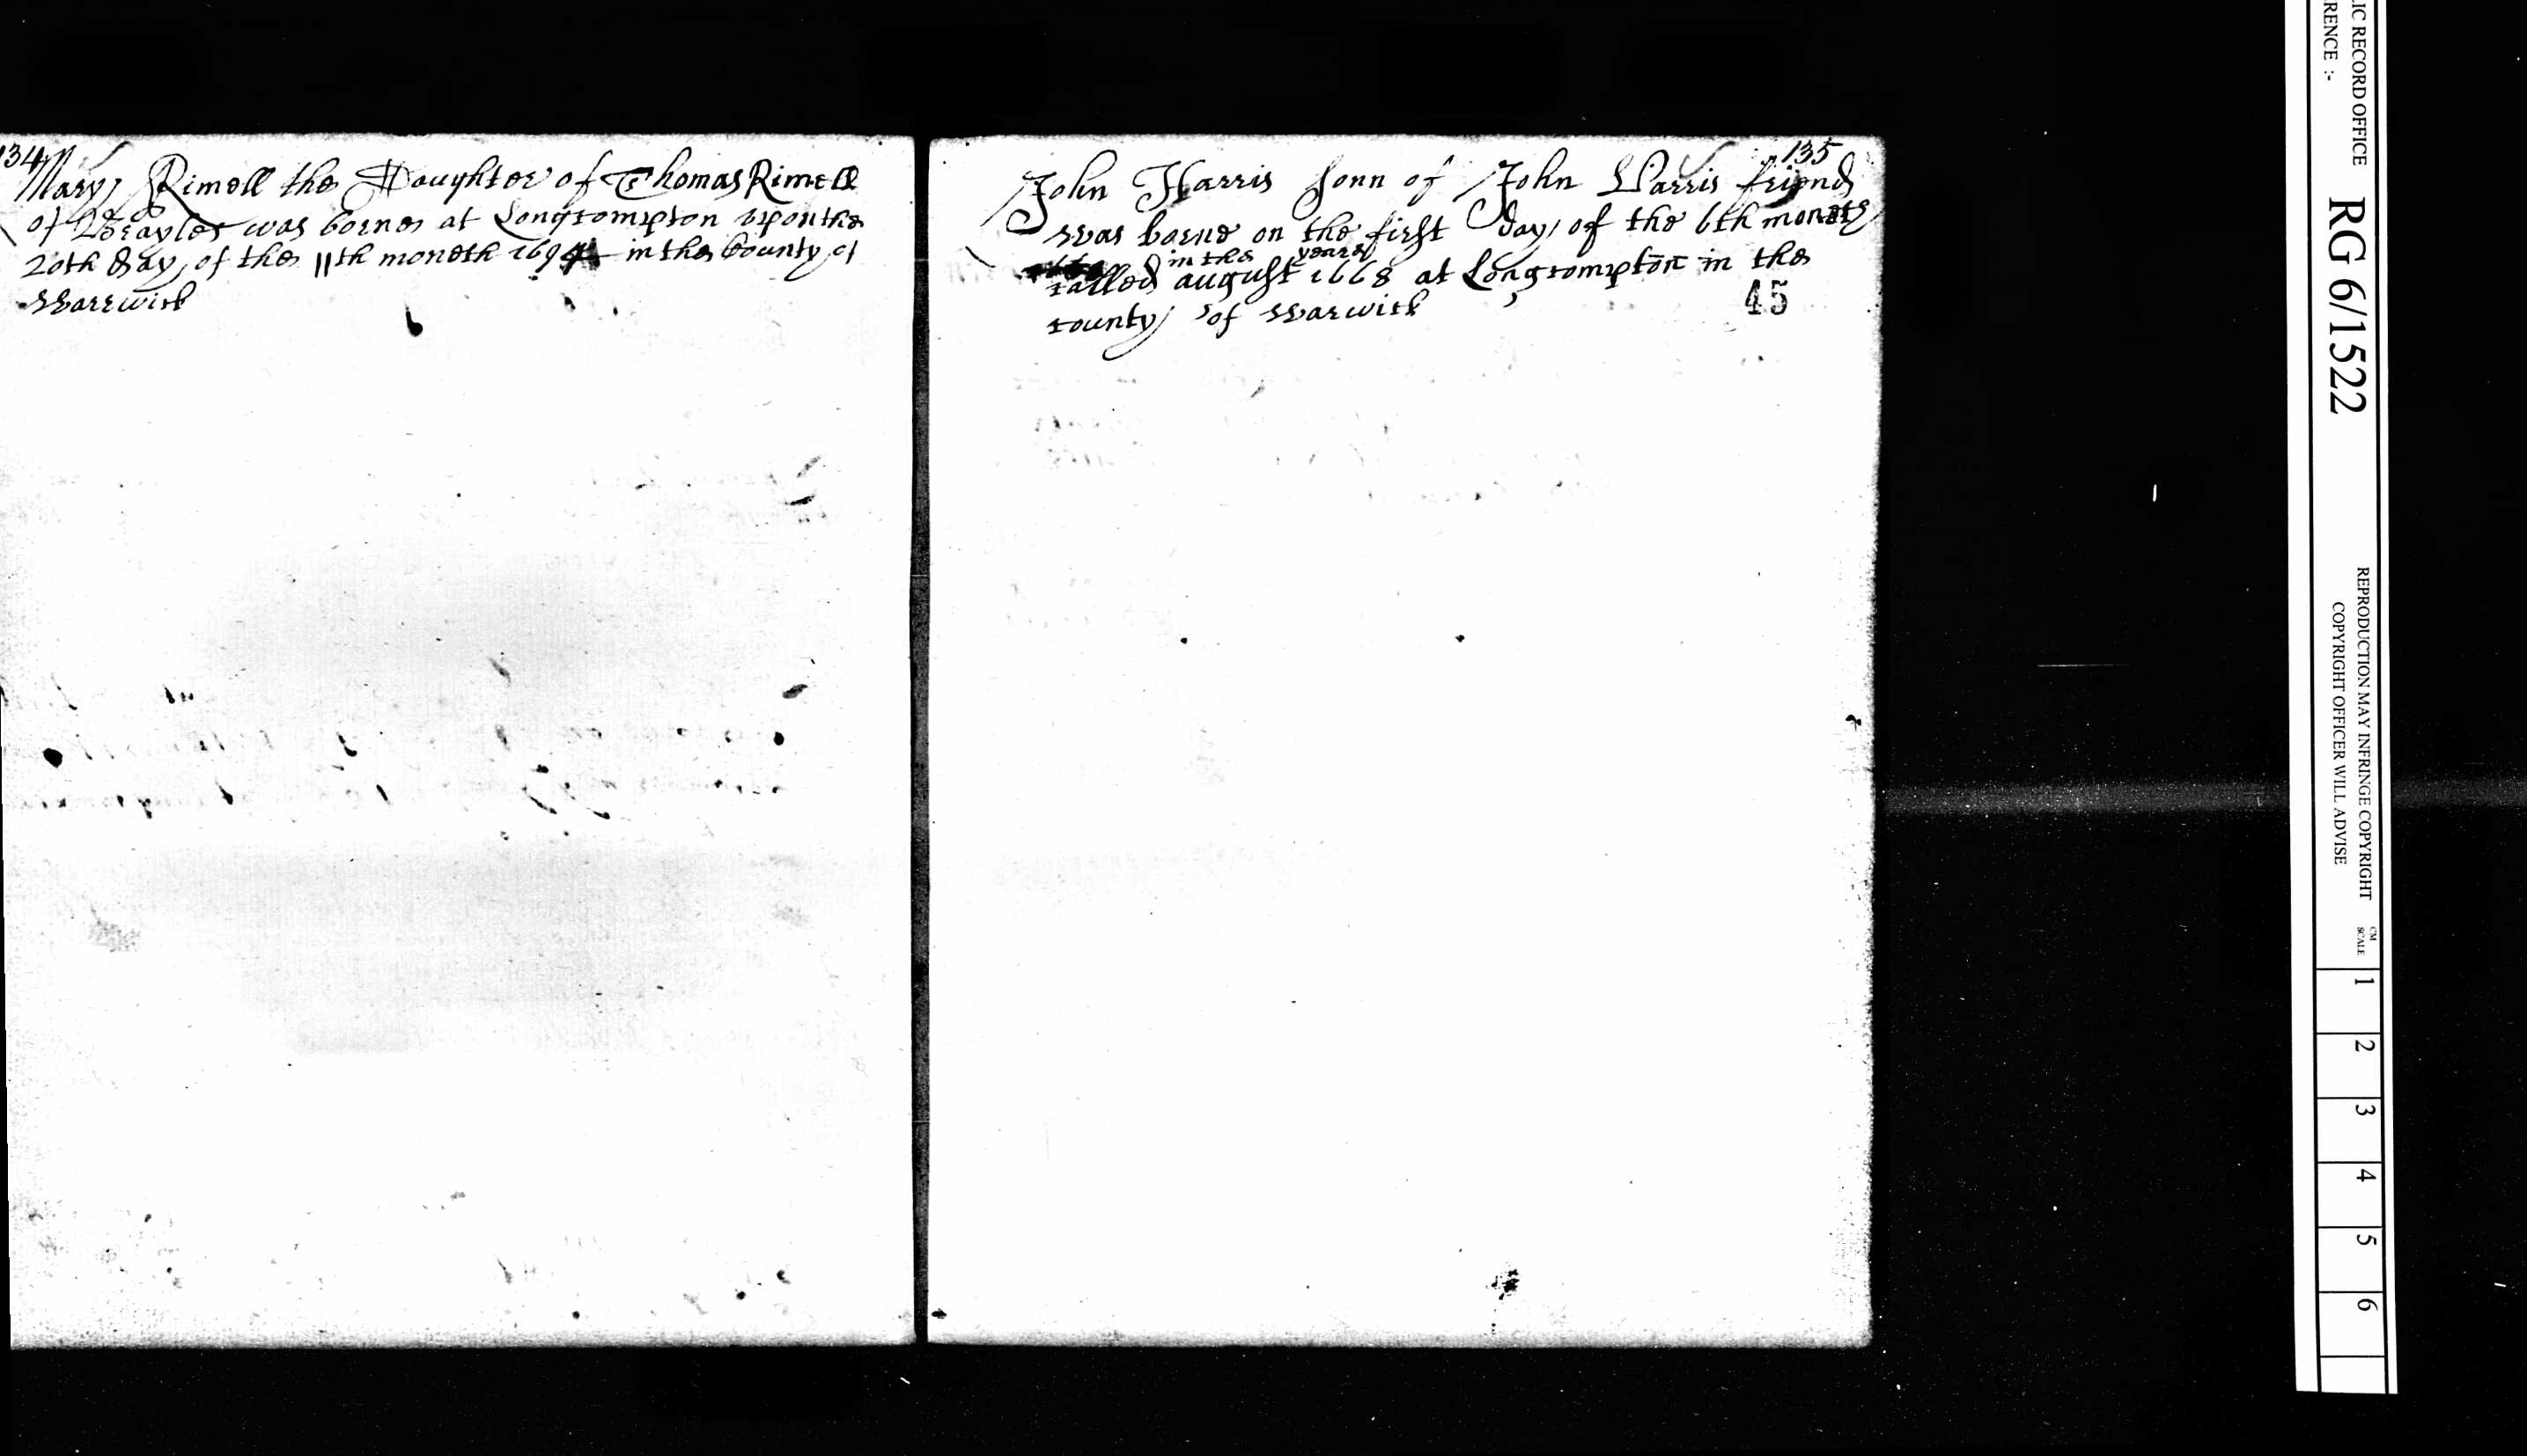 134
Mary Rimell the Daughter of Thomas Rimell
of Brayles was borne at Longcompton upon the
20th day of the 11th moneth 1694 in the County of
Warwick
135
John Harris sonn of John Harris friend
was borne on the first day of the 6th moneth
in the yeare
called august 1668 at Longcompton in the
45
county of Warwick
LIC RECORD OFFICE
RENCE :-
RG 6/1522
REPRODUCTION MAY INFRINGE COPYRIGHT
COPYRIGHT OFFICER WILL ADVISE
CM
SCALE
1
2
3
4
5
6